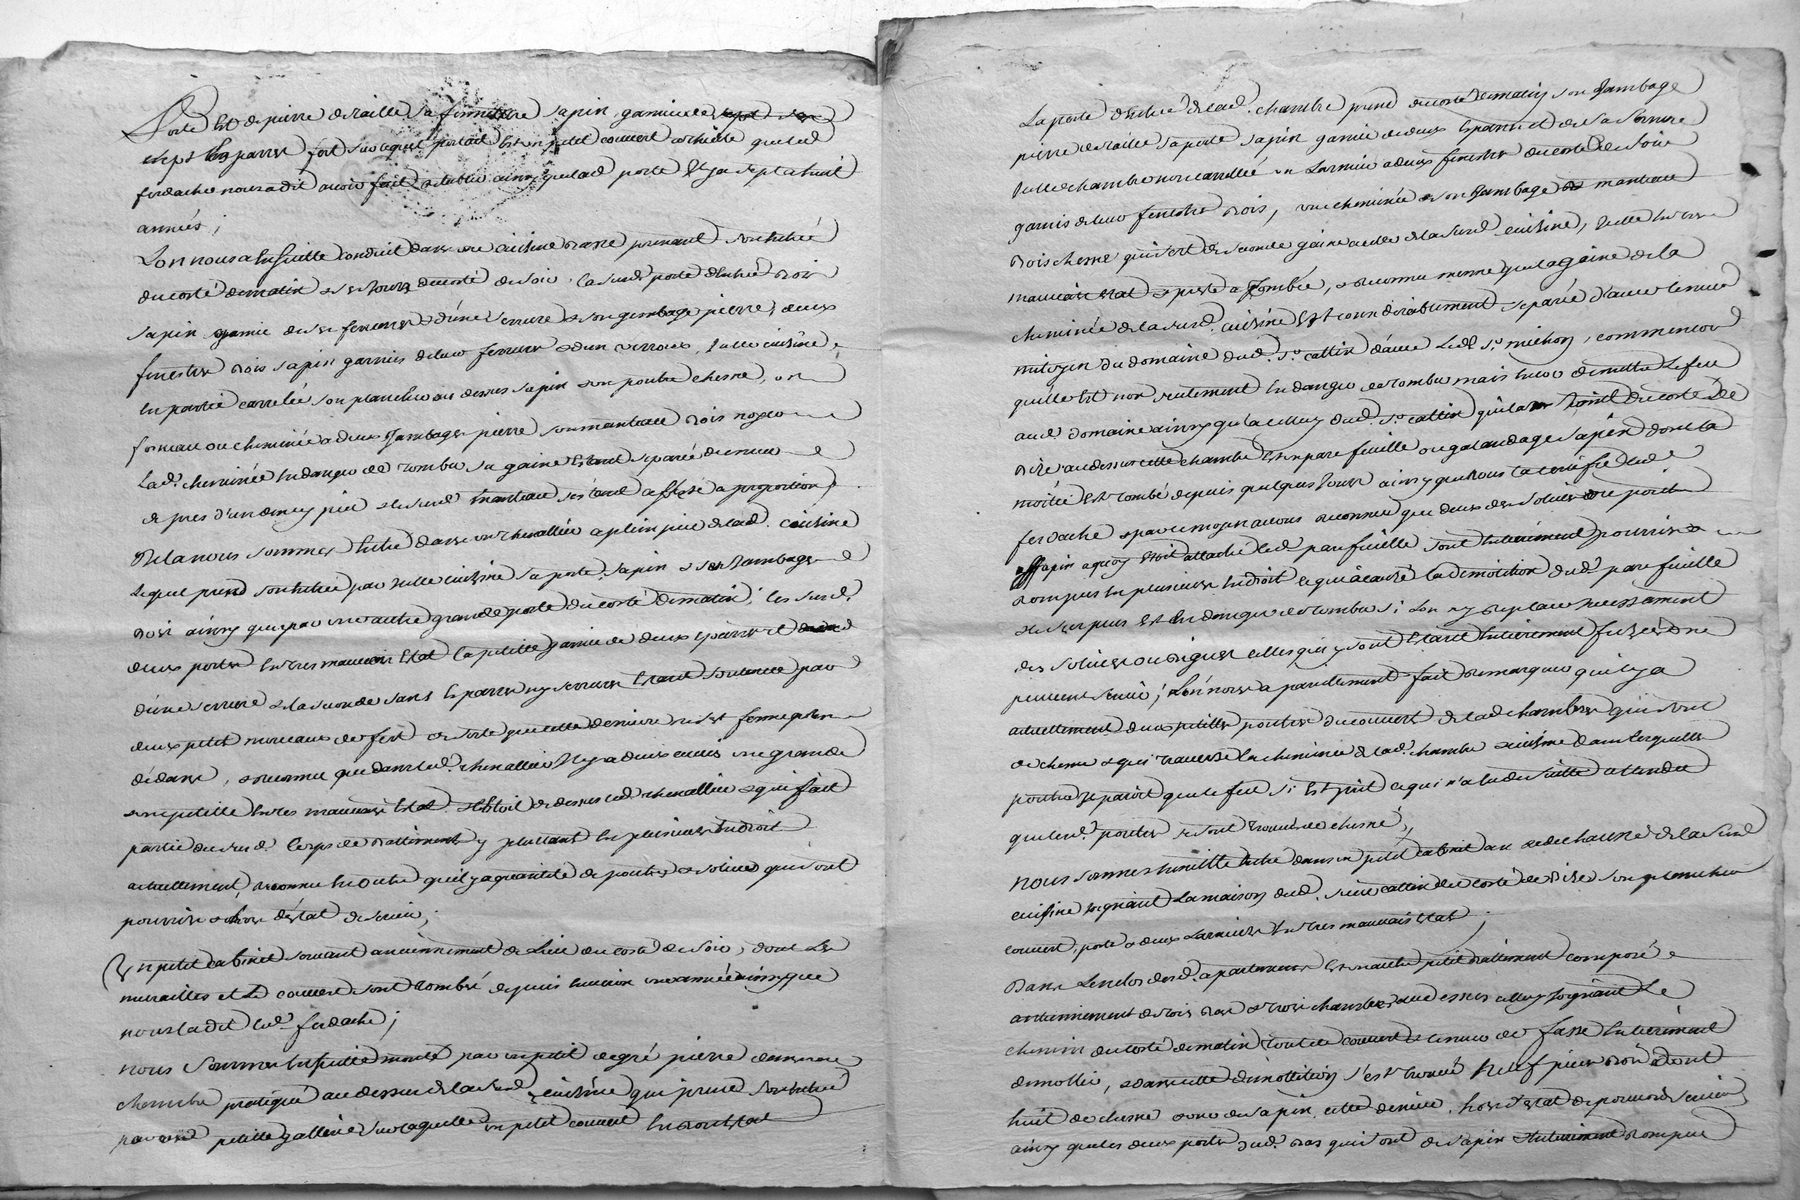 Porte est de pierre detaille sa fermeture sapin garnie de
sept esparres fort sur lequel portail est un petit couvert
ferdache nous a dit avoir fait establir ainsy que lad porte il y a sept a huit
années,
L'on nous a ensuitte conduit dans une cuisine basse prenant son entrée
du costé de matin et ses jours du costé de soir la susd porte d'entrée bois
sapin garnie de ses ferrures et d'une serrure et son jambage pierre, deux
fenestres bois sapin garnies de leur ferrures et d'un verroux, jcelle cuisine
en partie carrelée son plancher au dessus sapin et son poutre chesne, un
forneau ou cheminée a deux jambages pierre son manteau bois noyer
Lad. cheminée en danger de tomber sa gaine estant separée du mur
de pres d'un demy pied et le susd manteau s'estant affessé a proportion,
Delà nous sommes entré dans un chenallier a plein pied de lad. cuisine
Lequel prend son entrée par jcelle cuisine sa porte sapin et ses jambages
bois ainsy que par une autre grande porte du costé de matin, les susd.
deux portes en tres mauvais estat la petite garnie de deux esparres et
d'une serrure et la seconde sans esparres ny serrures estant soutenue par
deux petit morceaux de fert de sorte que cette derniere ne se ferme que
dedans, et reconnu que dans led. chenallier il y a deux cuves une grande
et une petitte en tres mauvais estat et le toit de dessus led chenallier et qui fait
partie du susd. corps de battiment y pleuvant en plusieurs endroit
actuellement, reconnu en outre qu'il y a quantité de poutres et solives qui sont
pourries et hors d'estat de servir,
Un petit cabinet servant anciennement de du costé de soir, dont les
murailles et le couvert sont tombés depuis environ une année ainsy que
nous la dit led. ferdache;
nous sommes ensuitte monté par un petit degré pierre dans une
chambre pratiquée au dessus de la susd. cuisine qui prend son entrée
par une petitte gallerie sur laquelle un petit couvert en bon estat
La porte d'entrée de lad. chambre prend du costé de matin son jambage
pierre de taille sa porte sapin garnie de deux esparres et de sa serrure
jcelle chambre non carrellée en a deux fenestres du costé de soir
garnis de leur fenestre bois, une cheminée et son jambage et manteau
bois chesne qui sert de seconde gaine a celle de la susd. cuisine, jcelle en tres
mauvais estat et preste a tomber, et reconnu mesme que la gaine de la
cheminée de la susd. cuisine est considérablement separée d'avec le mur
mitoyen du domaine dud. sr. cattin d'avec led. sr. michon, comme encor
qu'elle est non seulement en danger de tomber mais encor de mettre le feu
aud. domaine ainsy qu'a celluy dud. sr. cattin qui la joint du costé de
bize au dessus cette chambre est un pare feuille ou galandage sapin dont la
moitié est tombé depuis quelques jours ainsy que nous l'a certifié led.
ferdache et par ce moyen avons reconnu que deux des solives ou poutres
sapin a quoy étoit attaché led. parefeuille sont entierement pourries et
rompues en plusieurs endroit ce qui a causé la démolition dud. pare feuille
et le surplus est en danger de tomber si l'on n'y replace incessament
des solives ou vignes celles qui y sont estant entierement fusées et ne
peuvent servir; l'on nous a pareillement fait remarquer qu'il y a
actuellement deux petittes poutres du couvert de lad. chambre qui sont
de chesne et qui traverse la cheminée de lad. chambre et cuisine dans lesquelles
poutres il paroit que le feu si est prit ce qui n'a eu de suitte attendu
que lesd. poutres se sont trouvé de chesne,
Nous sommes ensuitte entré dans un petit cabinet au rez de chaussé de la susd.
cuisine joignant la maison dud. sieur cattin du costé de bize, son plancher
couvert, porte et deux en tres mauvais estat;
Dans l'enclos desd. apartemens est un autre petit battiment composé
anciennement de trois bas et trois chambres au dessus celluy joignant le
chemin du costé de matin, tout le couvert et le mur de face entierement
demollie, et dans cette démollition s'est trouvé neuf pieces bois dont
huit de chesne et une de sapin, cette derniere hors d'estat de pouvoir servir
ainsy que les deux portes dud. bas qui sont de sapin entierement rompue